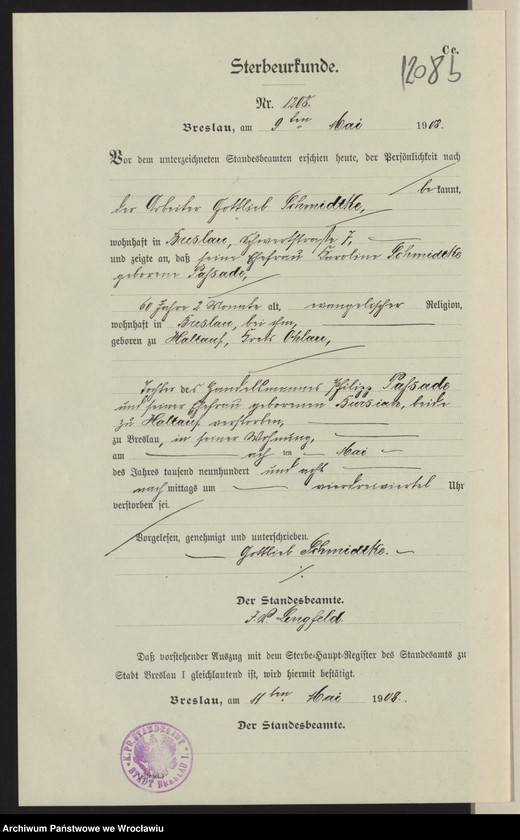 Ce.
1208 b
Sterbeurkunde.
Nr. 1208.
Breslau, am 9 ten Mai 1908.
Vor dem unterzeichneten Standesbeamten erschien heute, der Persönlichkeit nach
bekannt,
der Arbeiter Gottlieb Schmidtke,
wohnhaft in Breslau, Schwertstrasse 7,
und zeigte an, daß seine Ehefrau Karoline Schmidtke
geborene Passade,
60 Jahre 2 Monate alt, evangelischer Religion,
wohnhaft in Breslau, bei ihm,
geboren zu Haltauf, Kreis Ohlau,
Tochter des Handelsmannes Philipp Passade
und seiner Ehefrau geborenen Bursian, beide
zu Haltauf verstorben,
zu Breslau, in seiner Wohnung,
am acht ten Mai
des Jahres tausend neunhundert und acht
nachmittags um vierdreiviertel Uhr
verstorben sei.
Vorgelesen, genehmigt und unterschrieben.
Gottlieb Schmidtke.
Der Standesbeamte.
J.V. Lengfeld.
Daß vorstehender Auszug mit dem Sterbe-Haupt-Register des Standesamts zu
Stadt Breslau I gleichlautend ist, wird hiermit bestätigt.
Breslau, am 11 ten Mai 1908.
Der Standesbeamte.
K. PR. STANDESAMT
STADT BRESLAU I.
Archiwum Państwowe we Wrocławiu